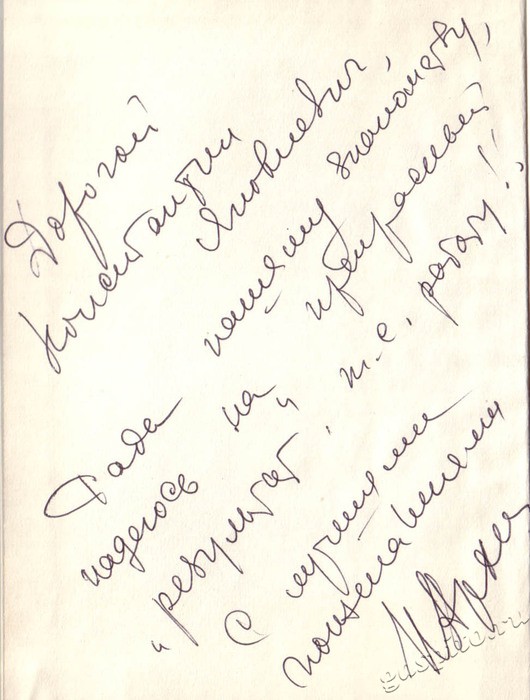 Дорогой
Константин
Яковлевич,
Рада нашему знакомству,
надеюсь на прекрасный
„результат", т.е. работу!!
С лучшими
пожеланиями